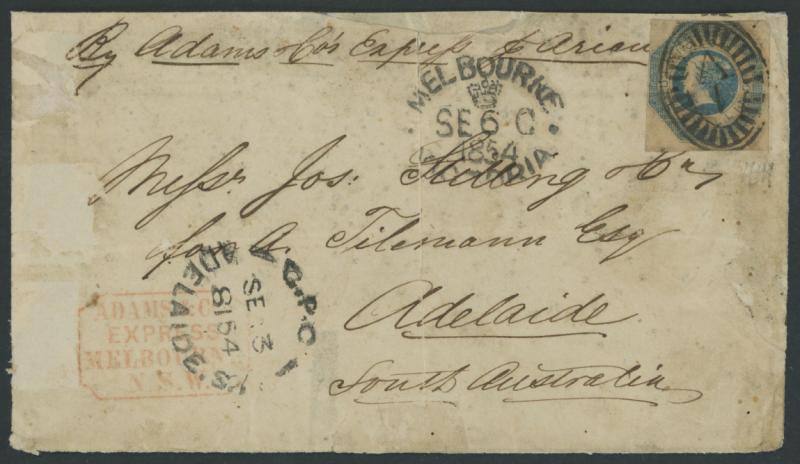 By Adams & Co's Express p Arian
MELBOURNE
SE 6 C
1854
VICTORIA
Messrs Jos. Stilling & Co
for A. Tilemann Esq
Adelaide
South Australia
G.P.O
SE 3
1854
ADELAIDE S
ADAMS & C
EXPRESS
MELBOURNE
N.S.W